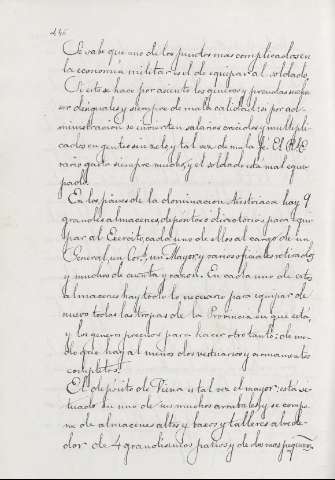 Se sabe que uno de los puntos mas complicados en
la economia militar es el de equipar al soldado.
Si esto se hace por asiento los generos y prendas
ser desiguales y siempre de mala calidad: si por ad-
ministracion se invierten salarios crecidos y multipli-
cados en gentes sin celo y tal vez de mala fe. El R.l E-
rario gasta siempre mucho, y el soldado está mal equi-
pado.
En los paises de la dominacion Austriaca hay 9
grandes almacenes, depositos o directorios para equi-
par al Exercito, cada uno de ellos al cargo de un
General, un Cor.l, un Mayor y varios oficiales retirados
y muchos de cuenta y razon. En cada uno de estos
almacenes hay todo lo necesario para equipar de
nuevo todas las tropas de la Provincia en que está,
y los generos precisos para hacer otro tanto: de mo-
do que hay al menos dos vestuarios y armamentos
completos.
El depósito de Viena es tal vez el mayor: está si-
tuado en uno de sus muchos arrabales, y se compo-
ne de almacenes altos y baxos y talleres al rede-
dor de 4 grandisimos patios y de dos mas pequeños.